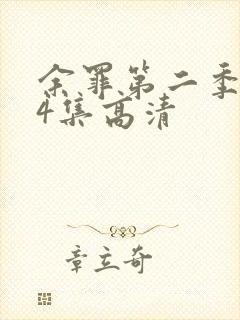 余罪第二季
4集高清
章立奇